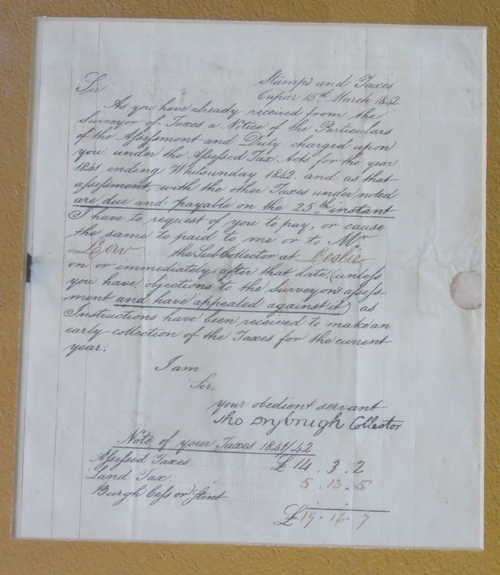 Stamps and Taxes
Cupar 15th March 1842
Sir
As you have already received from the
Surveyor of Taxes a Notice of the Particulars
of the Assessment and Duty charged upon
you under the Assessed Tax Acts for the year
1841 ending Whitsunday 1842. and as that
assessment, with the other Taxes under noted
are due and payable on the 25th instant
I have to request of you to pay, or cause
the same to paid to me or to Mr
Low the Sub Collector at Leslie
on or immediately after that date, (unless
you have objections to the Surveyor's assess-
ment and have appealed against it) as
Instructions have been received to make an
early collection of the Taxes for the current
year.
I am
Sir,
your obedient servant
Tho Drybrugh Collector
Note of your Taxes 1841/42
Assessed Taxes £ 14. 3. 2
Land Tax 5. 13. 5
Burgh Cess or Stent
£19. 16. 7